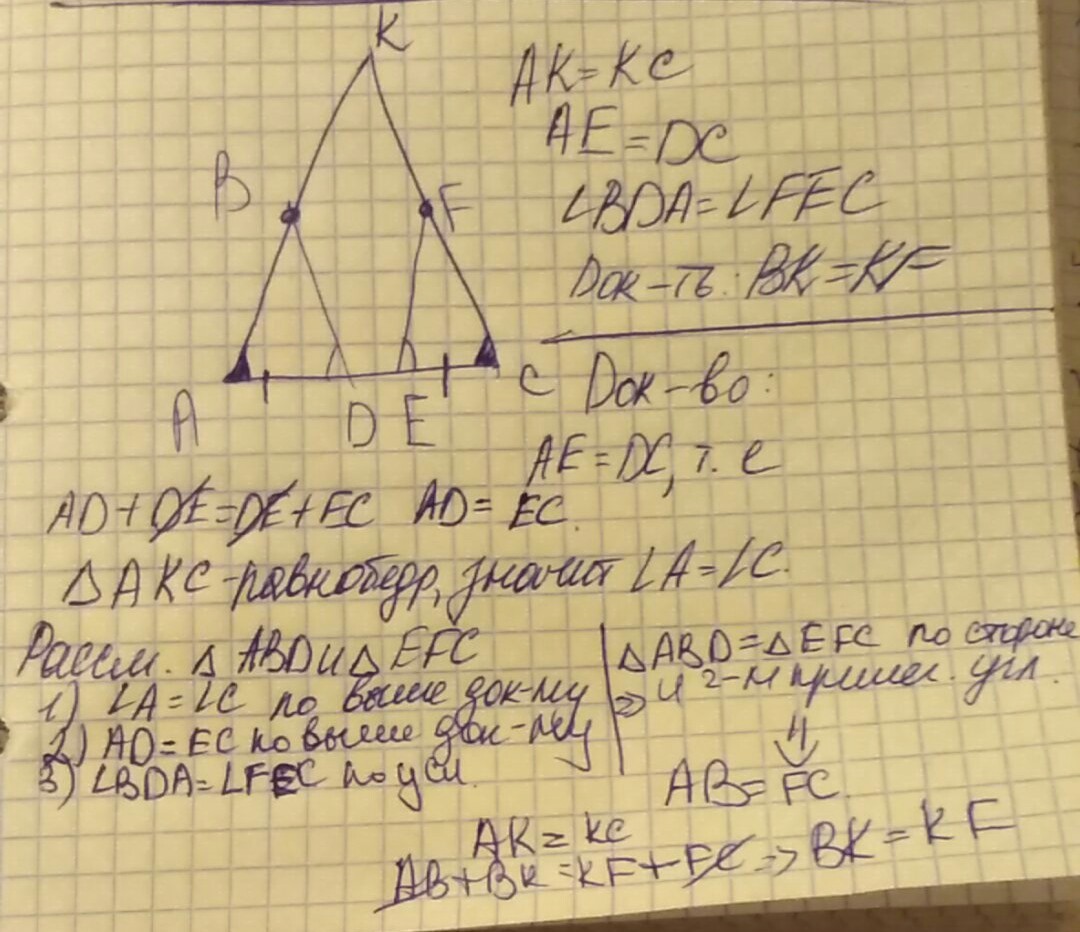 K
AK=KC
AE=DC
B
F
∠BDA=∠FEC
Док-ть: BK=KF
A
D E
C
Док-во:
AE=DC, т.е
AD+DE=DE+EC AD=EC.
△AKC-равнобедр, значит ∠A=∠C.
Рассм. △ABD и △EFC
1) ∠A=∠C по выше док-му
2) AD=EC по выше док-му
3) ∠BDA=∠FEC по усл.
△ABD=△EFC по стороне
⇒ и 2-м прилеж. угл.
⇓
AB=FC.
AK=KC
AB+BK=KF+FC⇒BK=KF